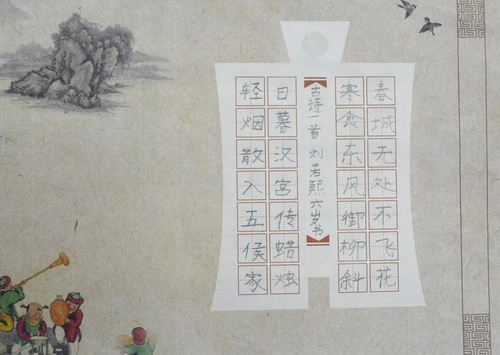 春城无处不飞花
寒食东风御柳斜
古诗一首 刘若熙六岁书
日暮汉宫传蜡烛
轻烟散入五侯家